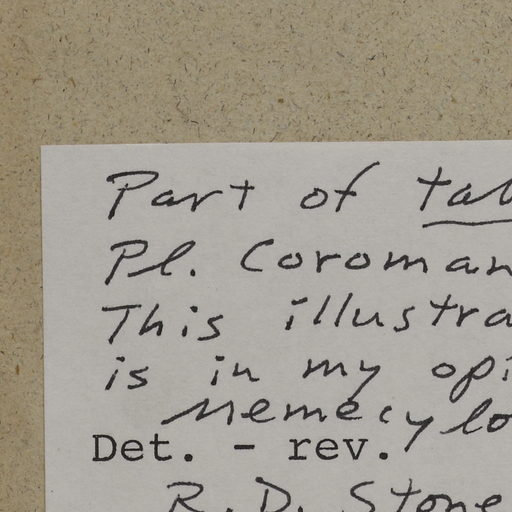 Part of tab
Pl. Coroman
This illustra
is in my opi
Memecylo
Det. - rev.
R. D. Stone